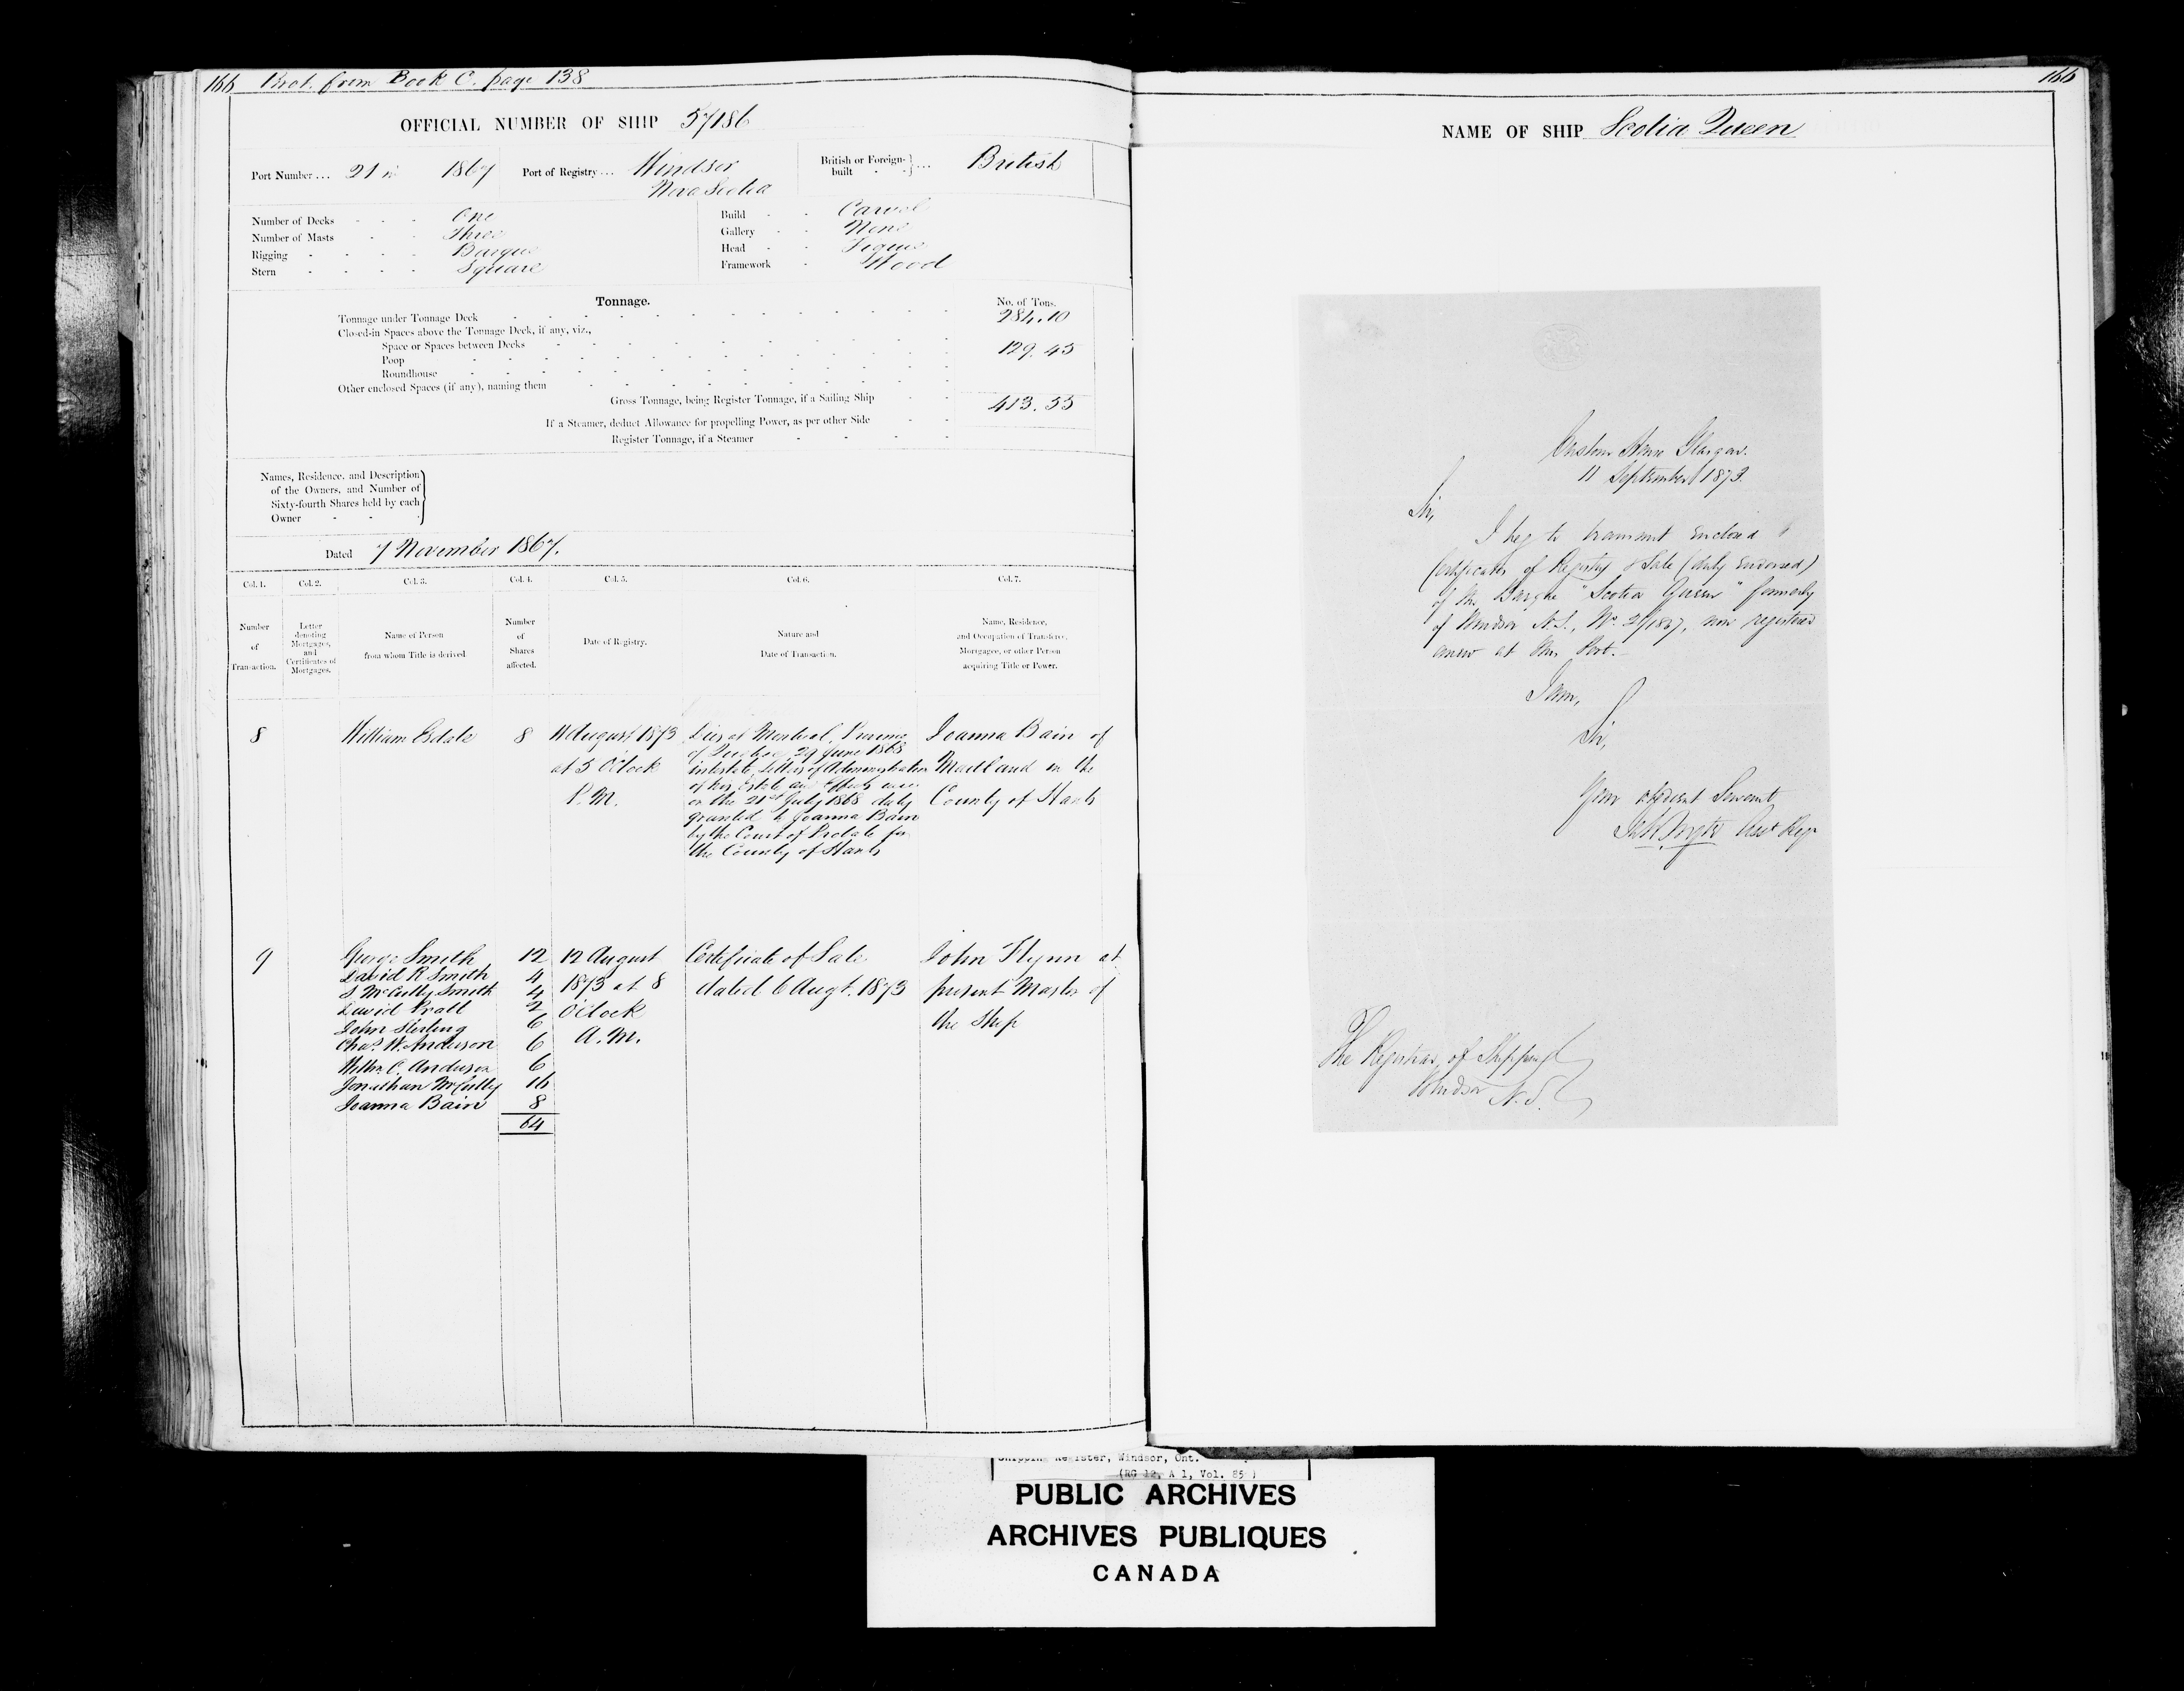 166 from Book C. page 138
OFFICIAL NUMBER OF SHIP 57186
Port Number ... 21 in 1867 Port of Registry ... Windsor Nova Scotia
British or Foreign-built ... British
Number of Decks One
Number of Masts Three
Rigging Barque
Stern Square
Build Carvel
Gallery None
Head Figure
Framework Wood
Tonnage.
No. of Tons.
Tonnage under Tonnage Deck 284.10
Closed-in Spaces above the Tonnage Deck, if any, viz.,
Space or Spaces between Decks 129.45
Poop
Roundhouse
Other enclosed Spaces (if any), naming them
Gross Tonnage, being Register Tonnage, if a Sailing Ship 413.55
If a Steamer, deduct Allowance for propelling Power, as per other Side
Register Tonnage, if a Steamer
Names, Residence, and Description
of the Owners, and Number of
Sixty-fourth Shares held by each
Owner
Dated 7 November 1867.
Col. 1. Col. 2. Col. 3. Col. 4. Col. 5. Col. 6. Col. 7.
Number of Transaction.
Letter denoting Mortgages, and Certificates of Mortgages.
Name of Person from whom Title is derived
Number of Shares affected.
Date of Registry.
Nature and Date of Transaction.
Name, Residence, and Occupation of Transferee, Mortgagee, or other Person acquiring Title or Power.
8
William Esdale
8
11 August 1873
at 3 O'Clock
P.M.
Dies at Montreal, Province
of Quebec, 29 June 1868
intestate, Letters of Administration
of his Estate and Effects were
on the 21st July 1868 duly
granted to Joanna Bain
by the Court of Probate for
the County of Hants
Joanna Bain of
Maitland in the
County of Hants
9
George Smith 12
David R Smith 4
S McCully Smith 4
David Pratt 2
John Sterling 6
Chas. W. Anderson 6
Willm. C. Anderson 6
Jonathan McCully 16
Joanna Bain 8
64
12 August
1873 at 8
O'Clock
A.M.
Certificate of Sale
dated 6 Augt. 1873
John Flynn at
present Master of
the Ship
166
NAME OF SHIP Scotia Queen
Custom House Glasgow.
11 September 1873.
Sir,
I beg to transmit enclosed
Certificates of Registry & Sale (duly endorsed)
of the Barque "Scotia Queen" formerly
of Windsor N.S., No. 21/1867, now registered
anew at this Port.
I am,
Sir,
Your obedient Servant
Asst Regr
The Registrar of Shipping
Windsor N.S.
Shipping Register, Windsor, Ont.
(RG 12, A 1, Vol. 85)
PUBLIC ARCHIVES
ARCHIVES PUBLIQUES
CANADA